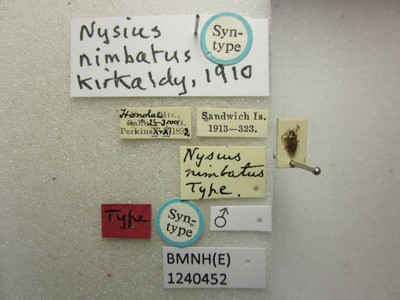 Nysius
nimbatus
Kirkaldy, 1910
Syn-
type
Honolulu
Perkins X-XI 1892
Sandwich Is.
1913—323.
Nysius
nimbatus
Type.
Type
Syn-
type
♂
BMNH(E)
1240452